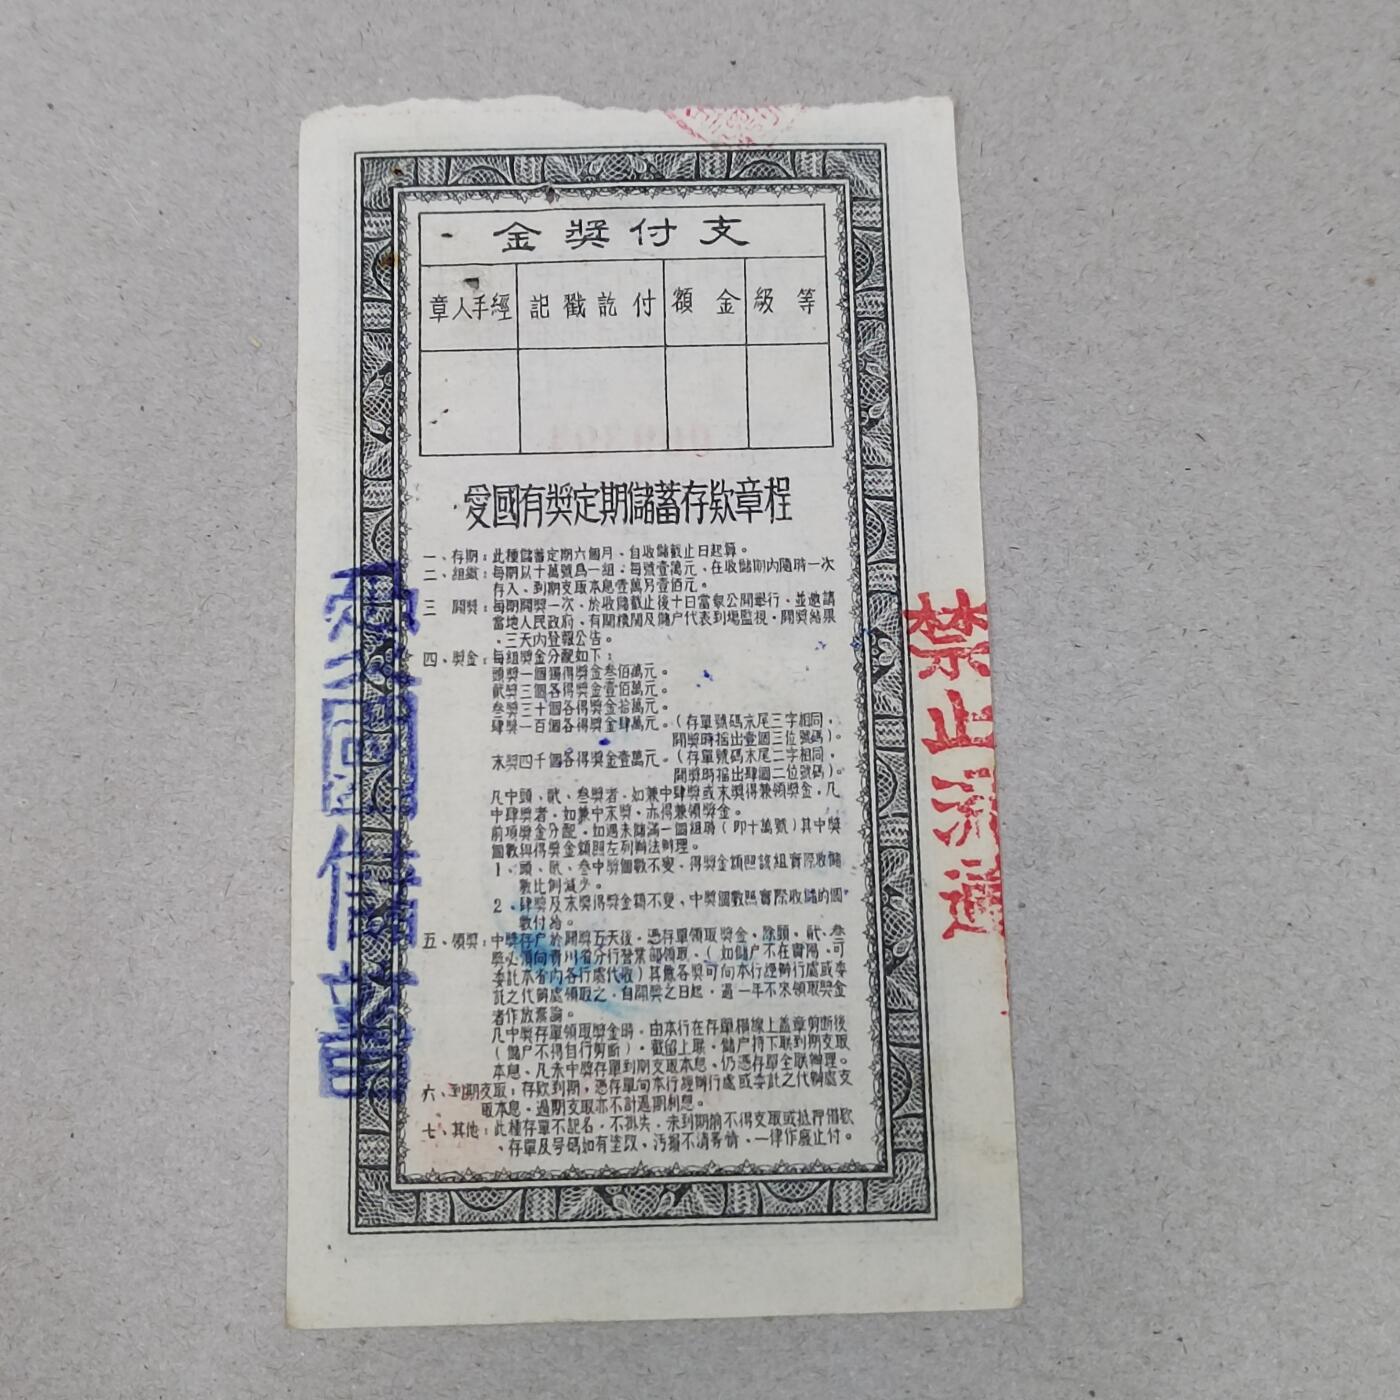 支付獎金
等級
金額
付訖戳記
經手人章
愛國有獎定期儲蓄存款章程
一、存期：此種儲蓄定期六個月、自收儲截止日起算。
二、組織：每期以十萬號爲一組，每號壹萬元、在收儲期內隨時一次
存入、到期支取本息壹萬另壹佰元。
三 開獎：每期開獎一次、於收儲截止後十日當衆公開舉行、並邀請
當地人民政府、有關機関及儲户代表到場監視，開獎結果
、三天內登報公告。
四、獎金：每組獎金分配如下：
頭獎一個獨得獎金叁佰萬元。
貳獎三個各得獎金壹佰萬元。
叁獎三十個各得獎金拾萬元。
肆獎一百個各得獎金肆萬元。（存單號碼末尾三字相同，
開獎時搖出壹個三位號碼）。
末獎四千個各得獎金壹萬元。（存單號碼末尾二字相同，
開獎時搖出肆個二位號碼）。
凡中頭、貳、叁獎者，如兼中肆獎或末獎得兼領獎金，凡
中肆獎者，如兼中末獎，亦得兼領獎金。
前項獎金分配，如遇未儲滿一個組時（即十萬號）其中獎
個數與得獎金額照左列辦法辦理。
1、頭、貳、叁中獎個數不變、得獎金額照該組實際收儲
數比例減少。
2、肆獎及末獎得獎金額不變、中獎個數照實際收儲的個
數付給。
五、領獎：中獎存户於開獎五天後，憑存單領取獎金，除頭、貳、叁
獎必須向貴州省分行營業部領取、（如儲户不在貴陽、可
委託本省內各行處代收）其餘各獎可向本行經辦行處或委
託之代辦處領取之，自開獎之日起，過一年不來領取獎金
者作放棄論。
凡中獎存單領取獎金時，由本行在存單橫線上蓋章剪斷後
（儲户不得自行剪斷），截留上聯，儲户持下聯到期支取
本息、凡未中獎存單到期支取本息、仍憑存單全聯辦理。
六、到期支取：存款到期，憑存單向本行經辦行處或委託之代辦處支
取本息，過期支取亦不計過期利息。
七、其他：此種存單不記名，不掛失，未到期前不得支取或抵押借款
、存單及号码如有塗改、污損不清等情，一律作廢止付。
愛國儲蓄
禁止流通